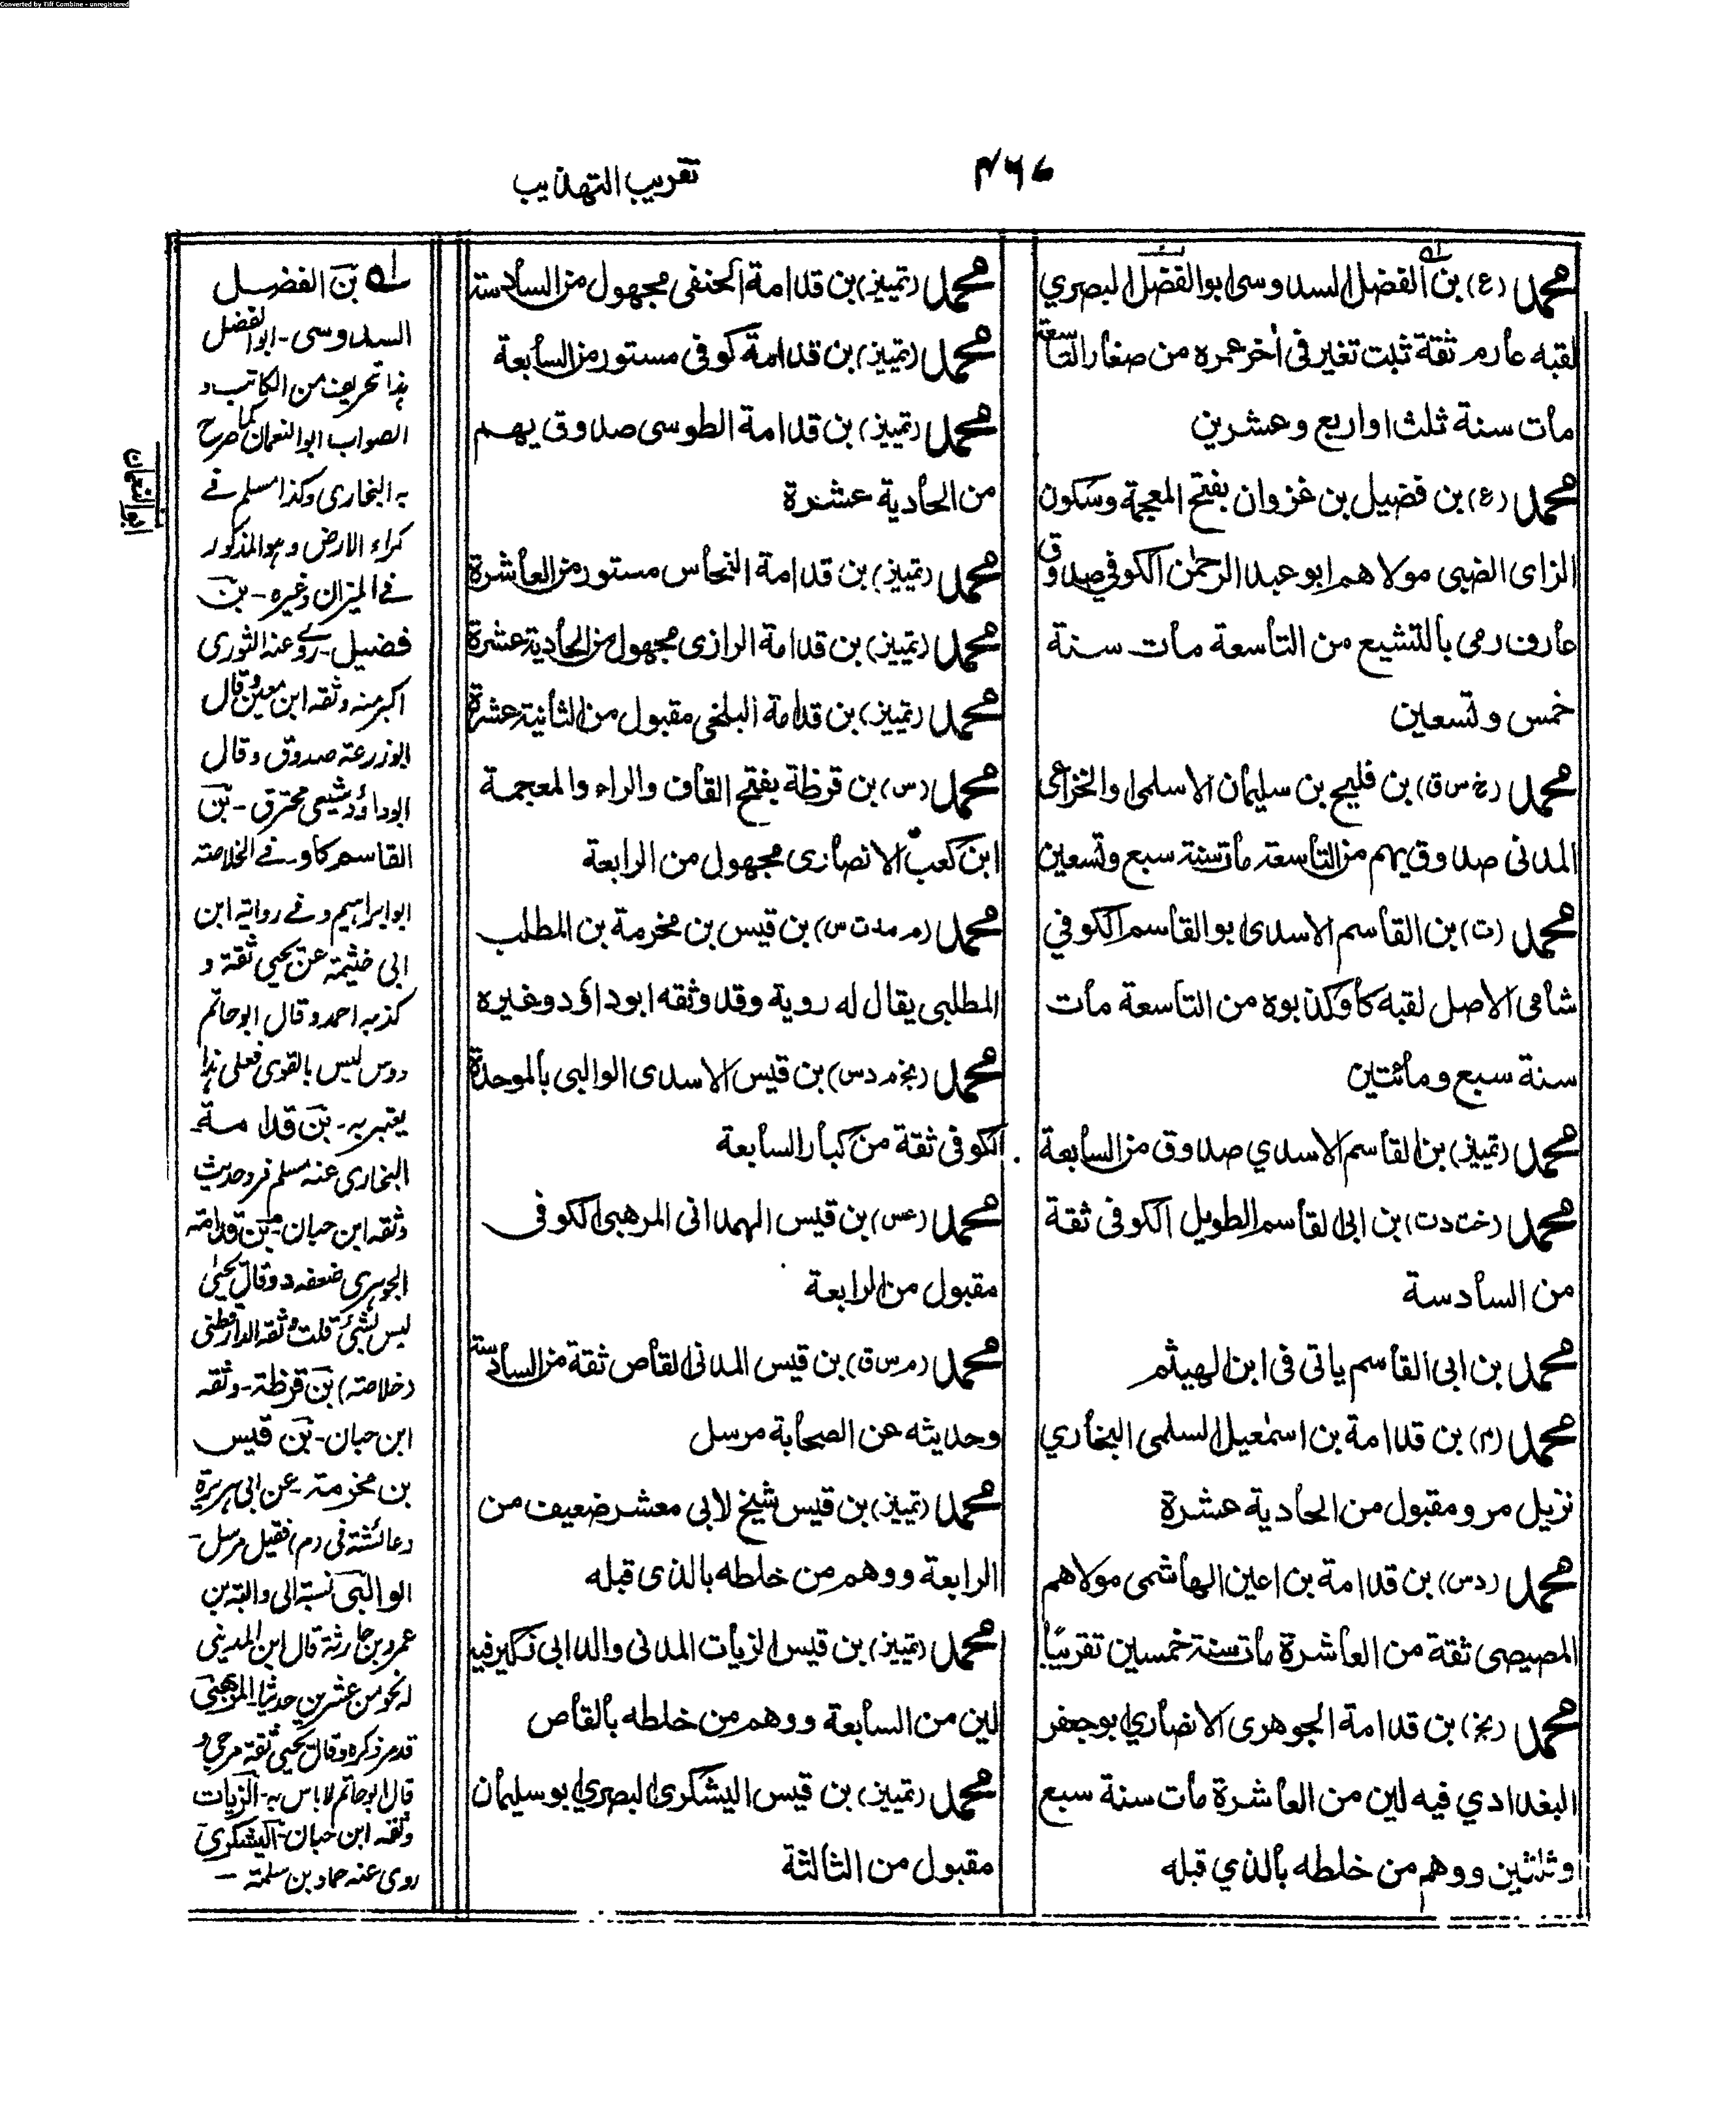 Converted by Tiff Combine - unregistered
۴۶۶
تقريب التهذيب
محمد (ع) بن الفضل السدوسى ابوالفضل البصري
لقبه عارم ثقة ثبت تغير فى اٰخر عمره من صغار التاسعة
مات سنة ثلث او اربع وعشرين
محمد (ع) بن فضيل بن غزوان بفتح المعجمة وسكون
الزاى الضبى مولاهم ابو عبد الرحمٰن الكوفي صدوق
عارف رمى بالتشيع من التاسعة مات سنة
خمس وتسعين
محمد (خ س ق) بن فليح بن سليمان الاسلمى او الخزاعى
المدنى صدوق يهم من التاسعة مات سنة سبع وتسعين
محمد (ت) بن القاسم الاسدى ابو القاسم الكوفي
شامى الاصل لقبه كاو كذبوه من التاسعة مات
سنة سبع ومائتين
محمد (تمييز) بن القاسم الاسدي صدوق من السابعة
محمد (خت د ت) بن ابى القاسم الطويل الكوفى ثقة
من السادسة
محمد بن ابى القاسم ياتى فى ابن الهيثم
محمد (م) بن قدامة بن اسمٰعيل السلمى البخاري
نزيل مرو مقبول من الحادية عشرة
محمد (د س) بن قدامة بن اعين الهاشمى مولاهم
المصيصى ثقة من العاشرة مات سنة خمسين تقريبًا
محمد (بخ) بن قدامة الجوهرى الانصاري ابو جعفر
البغدادي فيه لين من العاشرة مات سنة سبع
وثلثين ووهم من خلطه بالذي قبله
محمد (تمييز) بن قدامة الحنفى مجهول من السادسة
محمد (تمييز) بن قدامة كوفى مستور من السابعة
محمد (تمييز) بن قدامة الطوسى صدوق يهم
من الحادية عشرة
محمد (تمييز) بن قدامة النحاس مستور من العاشرة
محمد (تمييز) بن قدامة الرازى مجهول من الحادية عشرة
محمد (تمييز) بن قدامة البلخى مقبول من الثانية عشرة
محمد (س) بن قرظة بفتح القاف والراء والمعجمة
ابن كعب الانصارى مجهول من الرابعة
محمد (م مد ت س) بن قيس بن مخرمة بن المطلب
المطلبى يقال له روية وقد وثقه ابو داؤد وغيره
محمد (بخ م د س) بن قيس الاسدى الوالبى بالموحدة
الكوفى ثقة من كبار السابعة
محمد (عس) بن قيس الهمدانى المرهبى الكوفى
مقبول من الرابعة
محمد (م س ق) بن قيس المدنى القاص ثقة من السادسة
وحديثه عن الصحابة مرسل
محمد (تمييز) بن قيس شيخ لابى معشر ضعيف من
الرابعة ووهم من خلطه بالذى قبله
محمد (تمييز) بن قيس الزيات المدنى والد ابى زكير فيه
لين من السابعة ووهم من خلطه بالقاص
محمد (تمييز) بن قيس اليشكرى البصرى ابو سليمان
مقبول من الثالثة
له بن الفضيل
السدوسى - ابو الفضل
هذا تحريف من الكاتب و
الصواب ابو النعمان كما صرح
به البخارى وكذا مسلم فے
كراء الارض وهو المذكور
فے الميزان وغيره - بن
فضيل - روے عنه الثورى
اكبر منه وثقه ابن معين وقال
ابو زرعة صدوق وقال
ابو داؤد شيعى محترق - بن
القاسم كاو - فے الخلاصة
ابو ابراهيم و فے رواية ابن
ابى خيثمة عن يحيى ثقة و
كذبه احمد وقال ابو حاتم
ليس بالقوى فعلى هذا
يعتبر به - بن قدامة
البخارى عنه مسلم فرد حديث
وثقه ابن حبان - بن قدامة
الجوهرى ضعفه د وقال يحيى
ليس بشئ قلت وثقه الدارقطنى
(خلاصة) بن قرظة - وثقه
ابن حبان - بن قيس
بن مخرمة - عن ابى هريرة
وعائشة فى (م) فقيل مرسل -
الوالبى نسبة الى والبة بن
عمرو بن حارثة قال ابن المدينى
له نحو من عشرين حديثا - المرهبى
قد مر ذكره وقال يحيى ثقة مرجى و
قال ابو حاتم لا باس به - الزيات
وثقه ابن حبان - اليشكرى
روى عنه حماد بن سلمة -
ابو النعمان